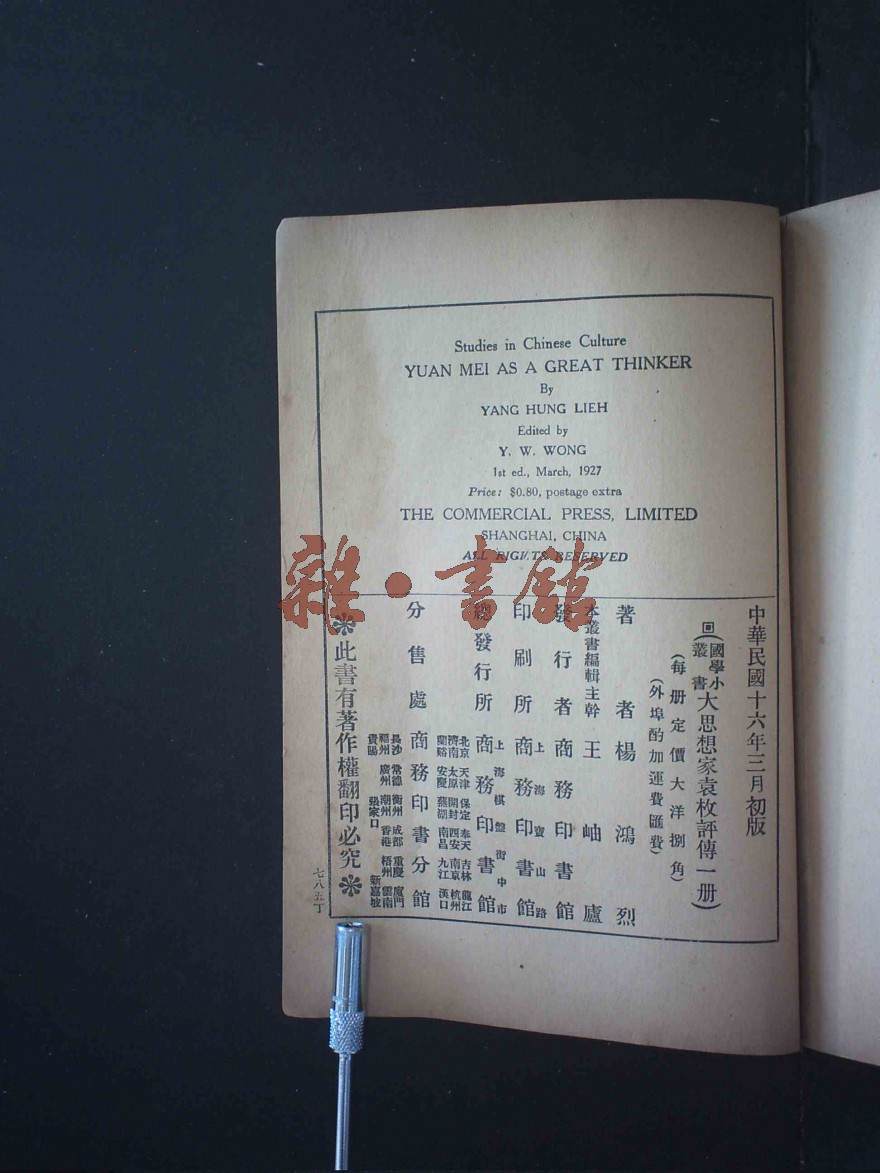 Studies in Chinese Culture
YUAN MEI AS A GREAT THINKER
By
YANG HUNG LIEH
Edited by
Y. W. WONG
1st ed., March, 1927
Price: $0.80, postage extra
THE COMMERCIAL PRESS, LIMITED
SHANGHAI, CHINA
ALL RIGHTS RESERVED
雜·書館
中華民國十六年三月初版
(國學小叢書大思想家袁枚評傳一册)
(每册定價大洋捌角)
(外埠酌加運費匯費)
著者 楊鴻烈
本叢書編輯主幹 王岫廬
發行者 商務印書館
印刷所 上海寶山路 商務印書館
總發行所 上海棋盤街中市 商務印書館
分售處 商務印書分館
北京 天津 保定 奉天 吉林 龍江
濟南 太原 開封 西安 南京 杭州
蘭谿 安慶 蕪湖 南昌 九江 漢口
長沙 常德 衡州 成都 重慶 廈門
福州 廣州 潮州 香港 梧州 雲南
貴陽 張家口 新嘉坡
此書有著作權翻印必究
七八五丁